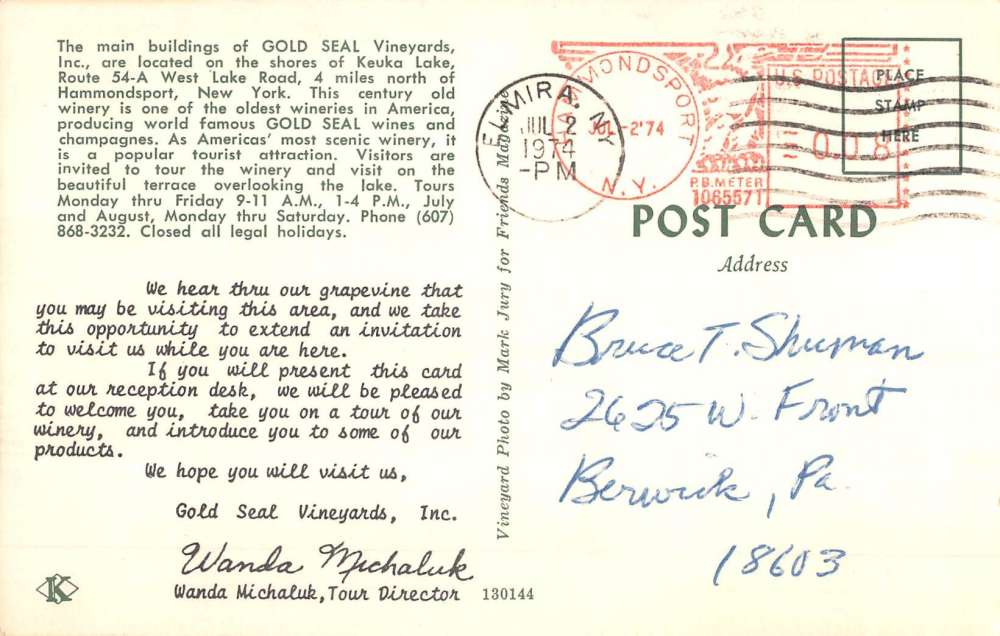 The main buildings of GOLD SEAL Vineyards,
Inc., are located on the shores of Keuka Lake,
Route 54-A West Lake Road, 4 miles north of
Hammondsport, New York. This century old
winery is one of the oldest wineries in America,
producing world famous GOLD SEAL wines and
champagnes. As Americas' most scenic winery, it
is a popular tourist attraction. Visitors are
invited to tour the winery and visit on the
beautiful terrace overlooking the lake. Tours
Monday thru Friday 9-11 A.M., 1-4 P.M., July
and August, Monday thru Saturday. Phone (607)
868-3232. Closed all legal holidays.
We hear thru our grapevine that
you may be visiting this area, and we take
this opportunity to extend an invitation
to visit us while you are here.
If you will present this card
at our reception desk, we will be pleased
to welcome you, take you on a tour of our
winery, and introduce you to some of our
products.
We hope you will visit us,
Gold Seal Vineyards, Inc.
Wanda Michaluk
Wanda Michaluk, Tour Director
K
130144
Vineyard Photo by Mark Jury for Friends Magazine
ELMIRA, NY
JUL 2
1974
-PM
HAMMONDSPORT
JUL-2'74
N.Y.
U.S. POSTAGE
008
P.B. METER
1065571
PLACE
STAMP
HERE
POST CARD
Address
Bruce T. Shuman
2625 W. Front
Berwick, Pa.
18603